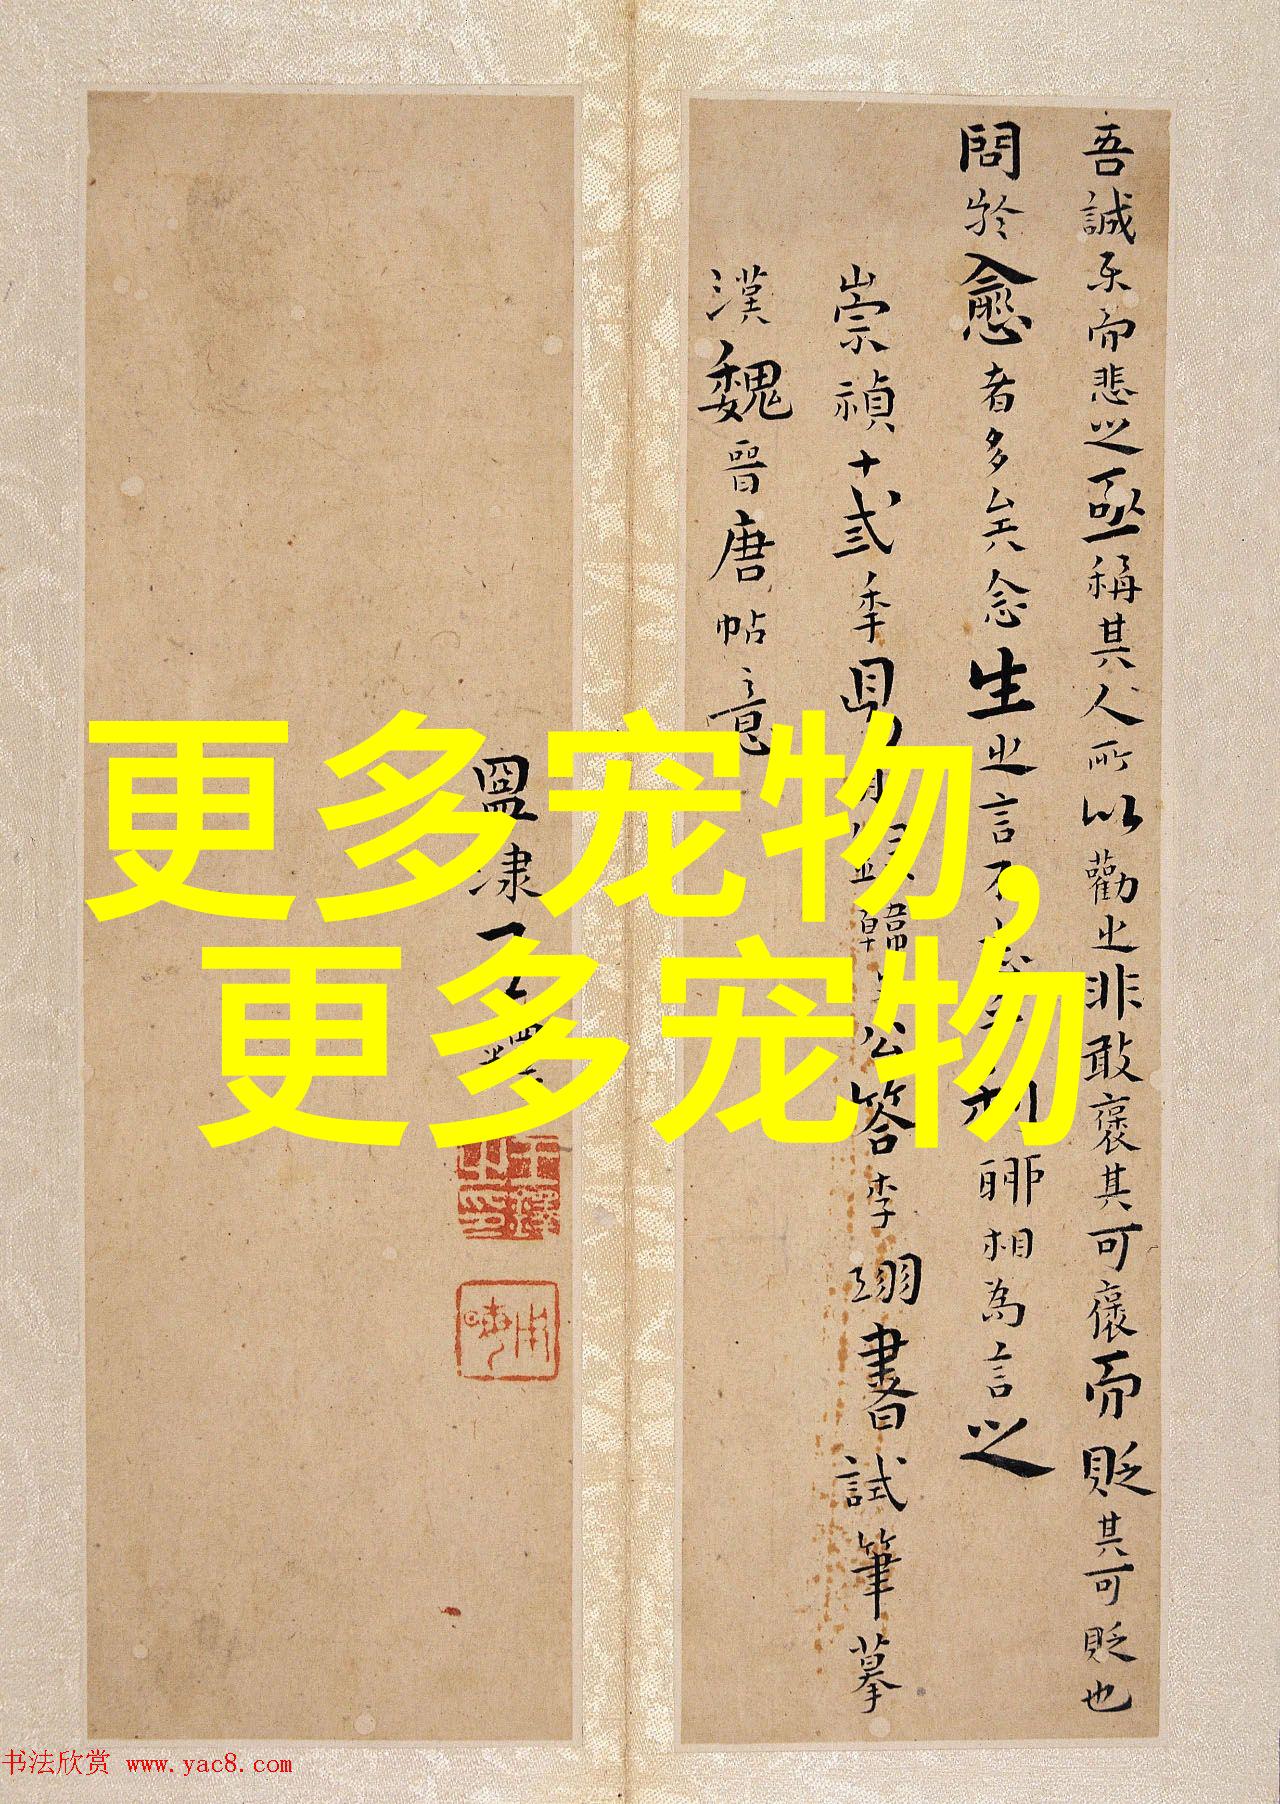 吾誠樂而悲之亟稱其人所以勸之非敢褒其可褒而貶其可貶也
問於愈者多矣念生之言不志乎利聊相為言之
崇禎十弍季 月 韓 公答李翊書試筆摹
漢魏晉唐帖意
王鐸之印
更多宠物,
更多宠物
书法欣赏 www.yac8.com